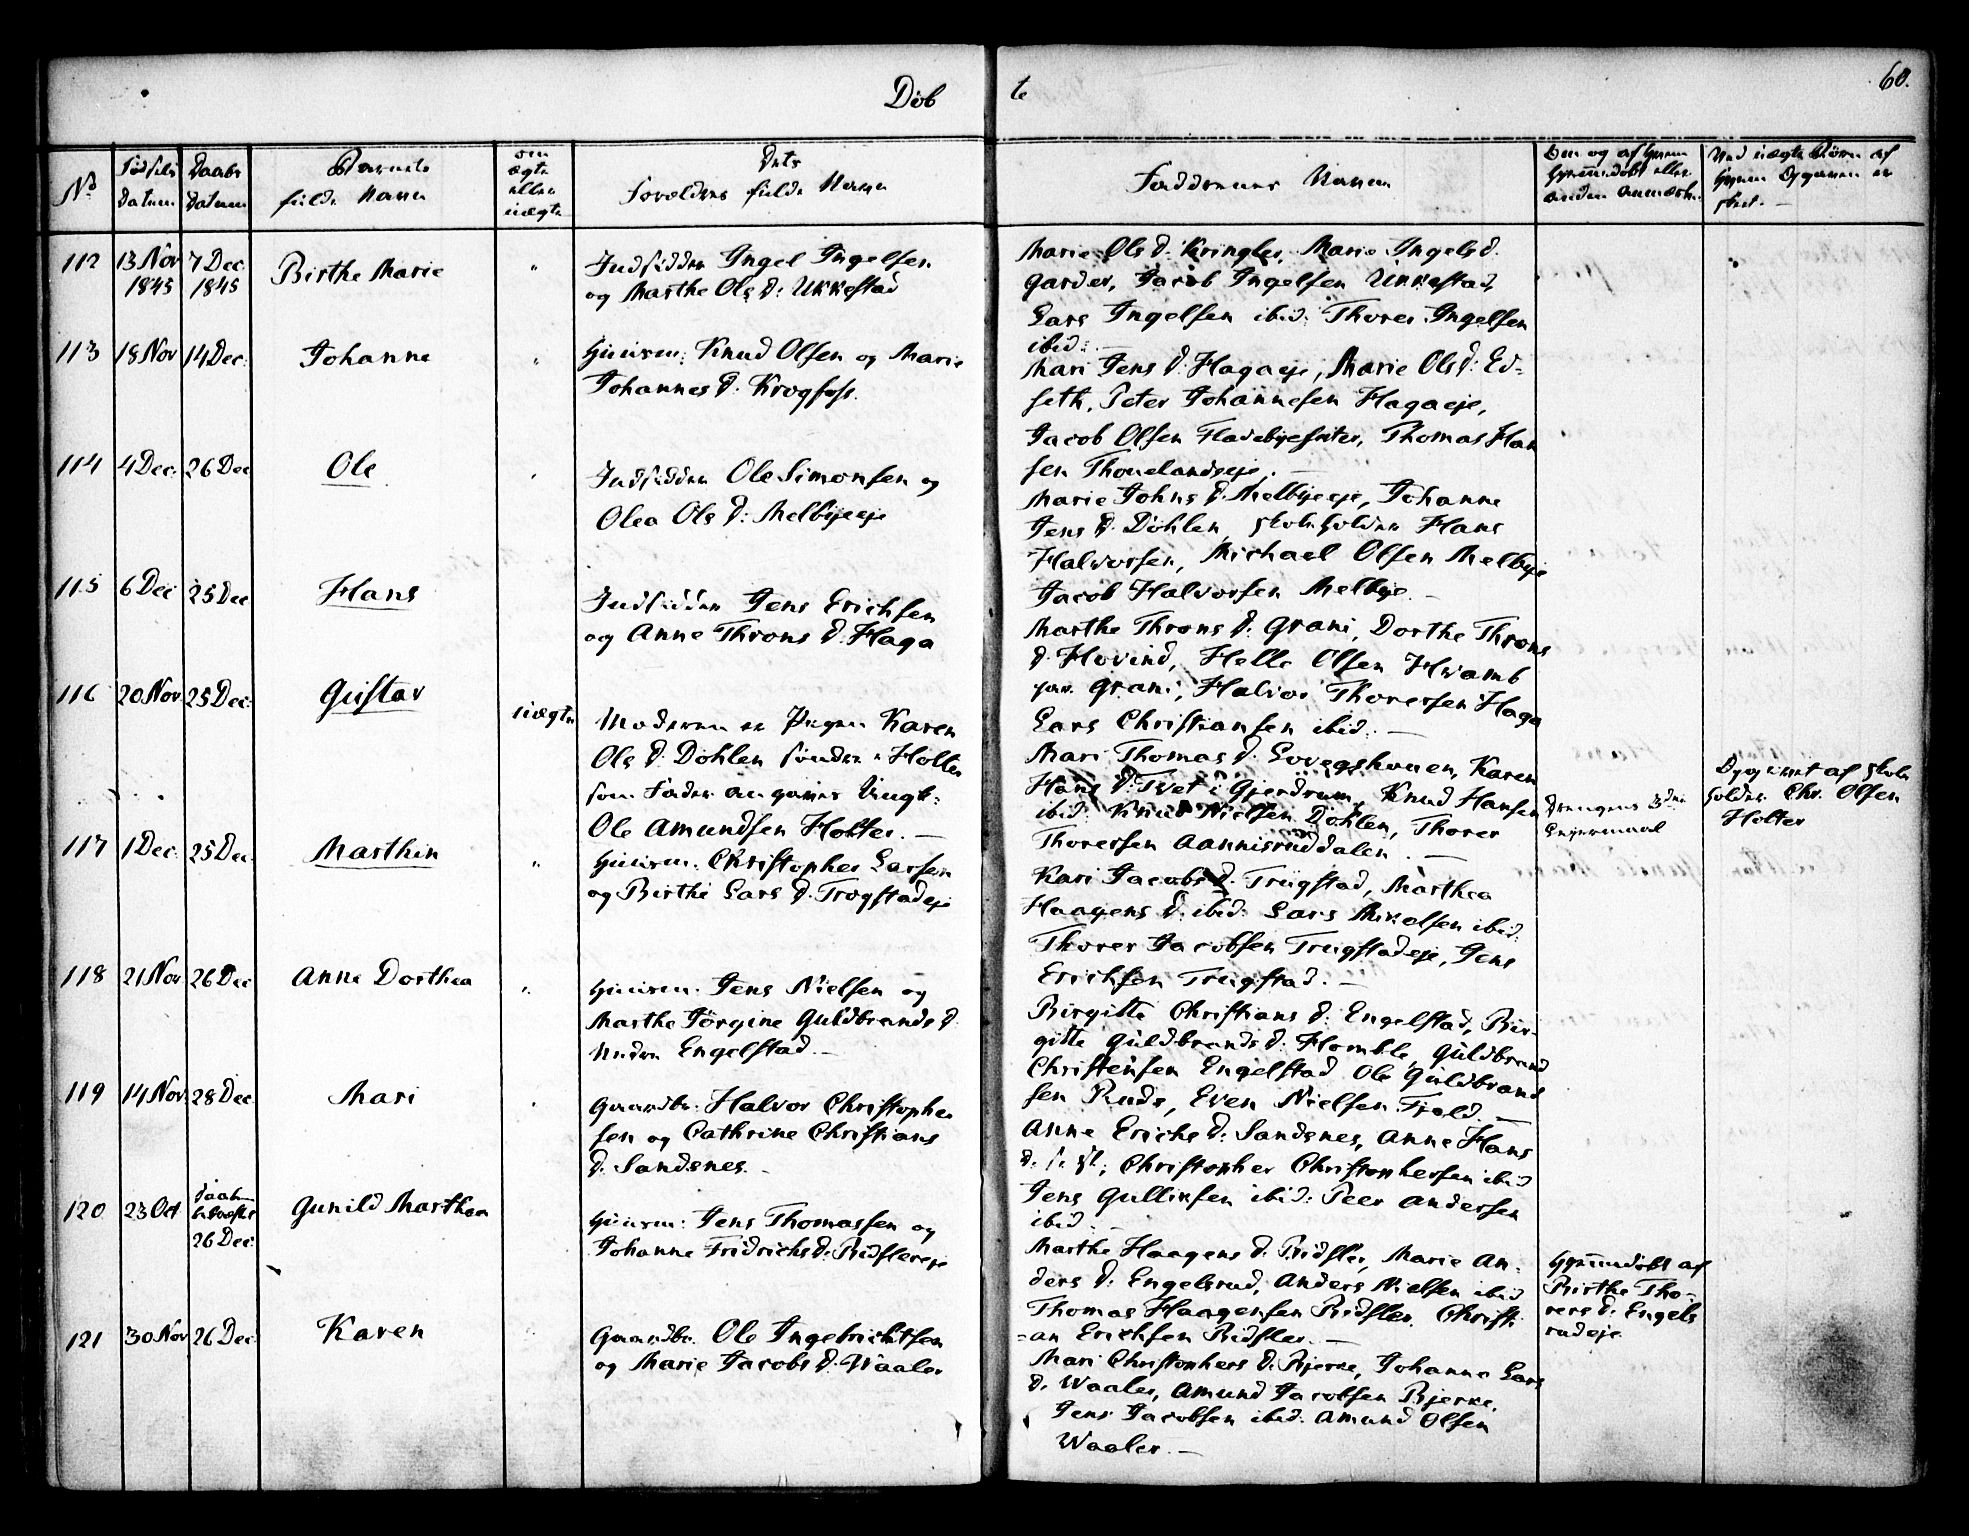 Døb
te
60.
No
Fødsels Datum
Daabs Datum
Barnets fulde Navn
om ægte eller uægte
Dets Forældres fulde Navn
Faddernes Navne
Om og af hvem hjemmedøbt eller anden Anmærkn.
Ved uægte Børn af hvem Opgaven er skeet.
112
13 Nov 1845
7 Dec. 1845
Birthe Marie
"
Indsidder Ingel Ingelsen
og Marthe Ols D: Ukkestad
Marie Ols D: Kringler, Marie Ingels D.
Garder, Jacob Ingelsen Ukkestad,
Lars Ingelsen ibid: Thorer Ingelsen
ibid:
113
18 Nov
14 Dec:
Johanne
"
Huusm: Knud Olsen og Marie
Johannes D. Krogfoss.
Mari Jens D: Hagaeje, Marie Ols D: Ed-
seth, Peter Johannesen Hagaeje,
Jacob Olsen Fladebyesæter, Thomas Han
sen Thonelandseje.
114
4 Dec:
26 Dec
Ole
Indsidder Ole Simonsen og
Olea Ols D: Melbyeeje
Marie Johns D: Melbyeeje, Johanne
Jens D. Døhlen, Skoleholder Hans
Halvorsen, Michael Olsen Melbye
Jacob Halvorsen Melbye.
115
6 Dec
25 Dec
Hans
Indsidder Jens Erichsen
og Anne Throns D. Haga
Marthe Throns D. Grani, Dorthe Throns
D. Hovind, Helle Olsen Hvamb
Grani, Halvor Thoresen Haga
Lars Christiansen ibid:
116
20 Nov
25 Dec:
Gustav
uægte
Moderen er Pigen Karen
Ols D. Døhlen søndre Holter
som Fader angives Ungk:
Ole Amundsen Holter.
Mari Thomas D. Lovegshouen, Karen
Hans D: Tvet i Gjerdrum, Knud Hansen
ibid: Knud Nielsen Døhlen, Thorer
Thoresen Aannisruddalen.
Drengens 3die
Leiermaal
Opgivet af Skole
holder Chr. Olsen
Holter
117
1 Dec:
25 Dec.
Marthin
"
Huusm: Christopher Larsen
og Birthe Lars D. Trøgstadeje
Kari Jacobs D. Trügstad, Marthea
Haagens D: ibid: Lars Mikelsen ibid:
Thorer Jacobsen Trügstadeje, Jens
Erichsen Trügstad.
118
21 Nov
26 Dec
Anne Dorthea
"
Huusm: Jens Nielsen og
Marthe Jörgine Guldbrands D.
Nedre Engelstad
Birgitte Christians D: Engelstad, Bir-
gitte Guldbrands D: Homble, Guldbrand
Christensen Engelstad Ole Guldbrand
sen Ruds, Even Nielsen Fjeld.
119
14 Nov
28 Dec
Mari
Gaardbr: Halvor Christopher
sen og Cathrine Christians
D. Sandsnes.
Anne Erichs D: Sandsnes, Anne Hans
D. , Christopher Christophersen ibid
Jens Gulliksen ibid: Peer Andersen
ibid.
120
23 Oct
Daaben bekræftet
26 Dec:
Gunild Marthea
Huusm: Jens Thomassen og
Johanne Fridrichs D. Ridslereje
Marthe Haagens D: Ridsler, Marie An-
ders D: Engelsrud, Anders Nielsen ibid
Thomas Haagensen Ridsler, Christi
-an Erichsen Ridsler.
Hjemmedøbt af
Birthe Tho-
rers D: Engels
rudeje
121
30 Nov
26 Dec
Karen
Gaardbr. Ole Ingebrichtsen
og Marie Jacobs D. Waaler
Mari Christophers D. Bjerke, Johanne Lars
D. Waaler, Amund Jacobsen Bjerke,
Jens Jacobsen ibid: Amund Olsen
Waaler.